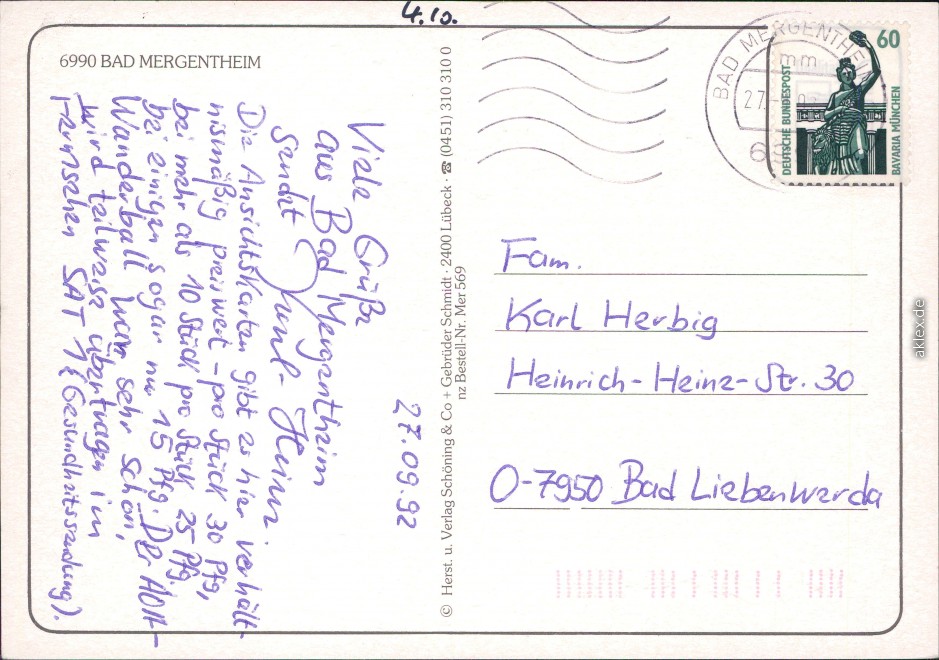 4.10.
6990 BAD MERGENTHEIM
27.09.92
Viele Grüße
aus Bad Mergentheim
sendet Karl-Heinz.
Die Ansichtskarten gibt es hier verhält-
nismäßig preiswert - pro Stück 30 Pfg,
bei mehr als 10 Stück pro Stück 25 Pfg.
bei einigen sogar nur 15 Pfg. Der AOK-
Wanderball war sehr schön,
wird teilweise übertragen im
Fernsehen SAT 1 (Gesundheitssendung).
© Herst. u. Verlag Schöning & Co + Gebrüder Schmidt · 2400 Lübeck · ☎ (0451) 310 310 0
nz Bestell-Nr. Mer 569
BAD MERGENTHEIM
mm
27.
60
DEUTSCHE BUNDESPOST
BAVARIA MÜNCHEN
Fam.
Karl Herbig
Heinrich-Heine-Str. 30
O-7950 Bad Liebenwerda
aklex.de